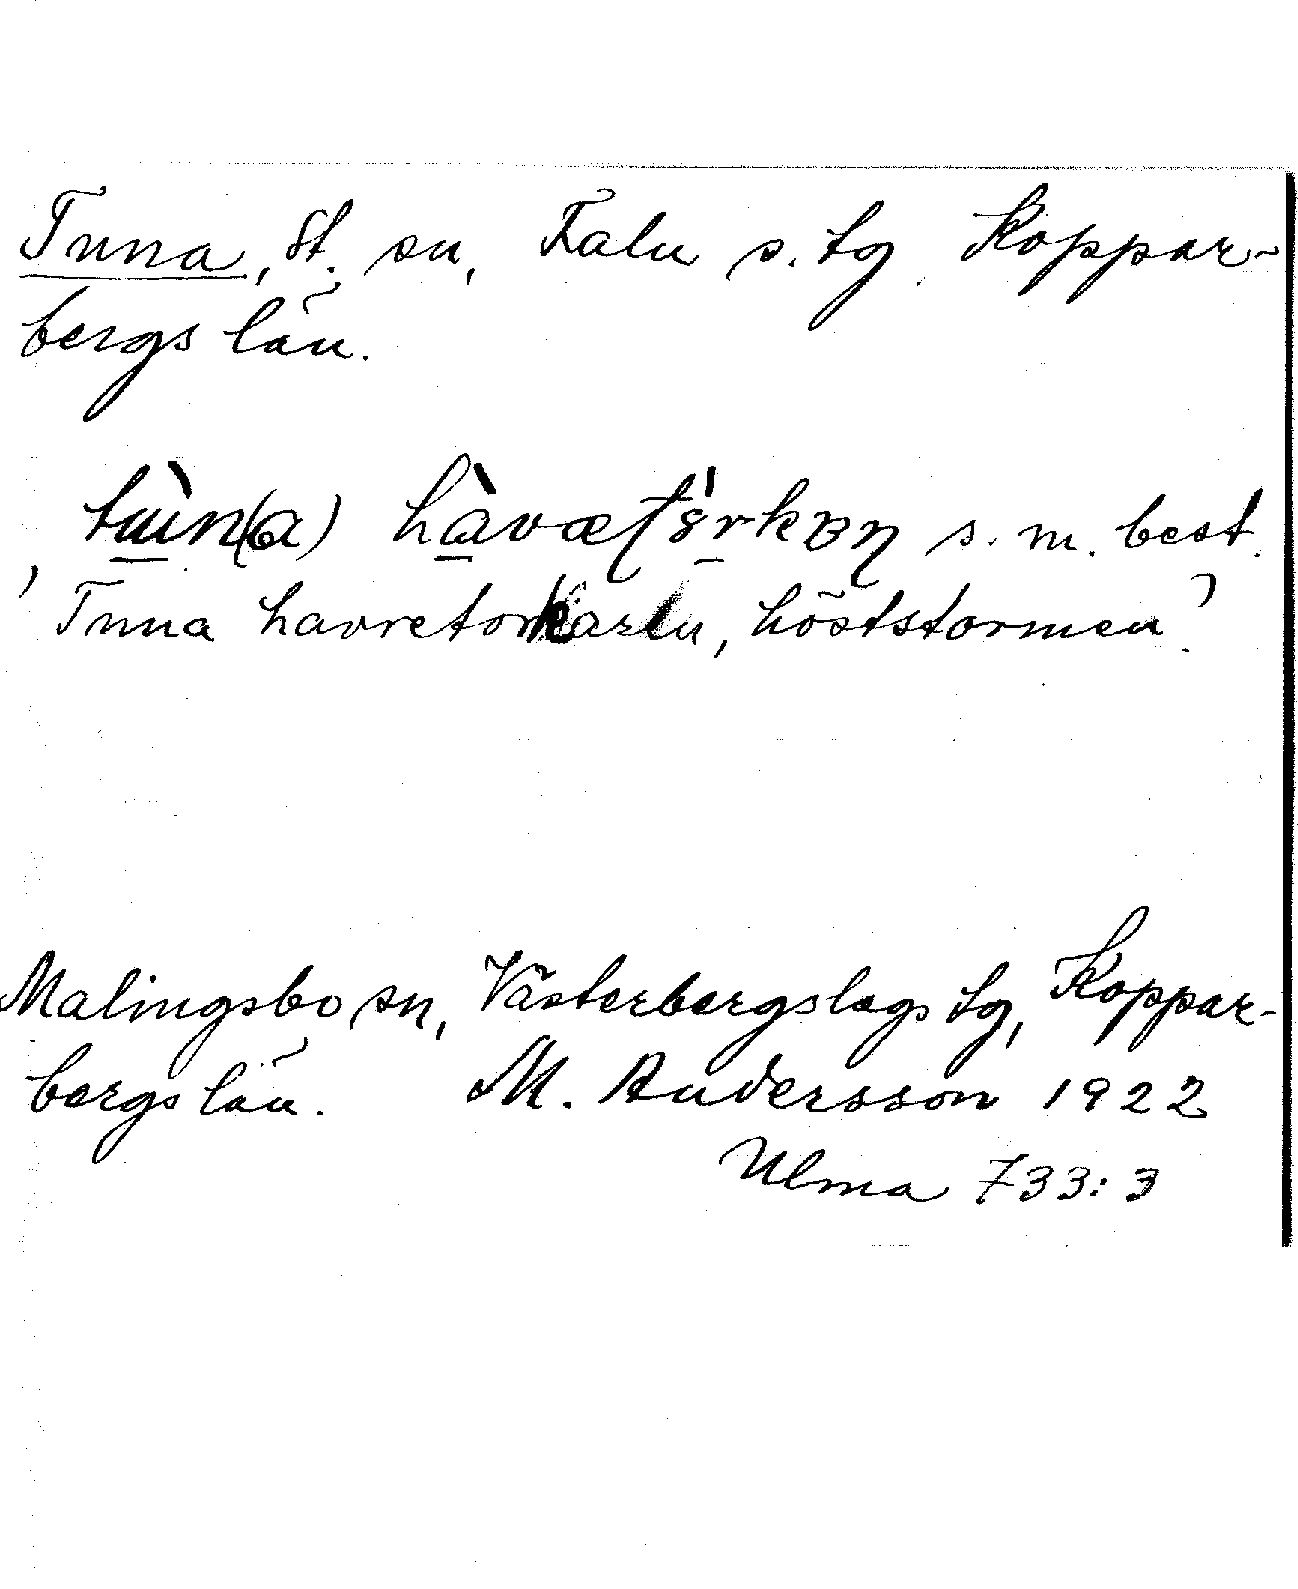 Tuna, St. sn, Falu s. tg Koppar-
bergs län.
tu̠̇n(a) hàvætɵ̇rkɐn s. m. best.
'Tuna havretorkarlu, höststormen'.
Malingsbo sn, Västerbergslags tg, Koppar-
bergs län. M. Andersson 1922
Ulma 733:3